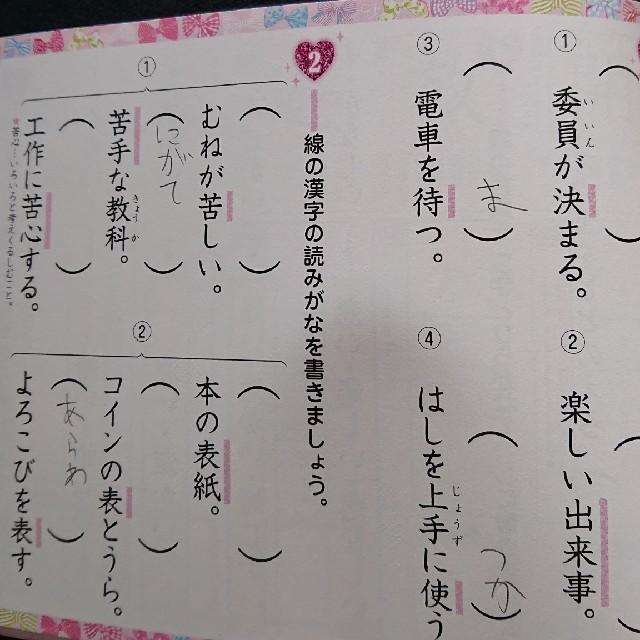 ① 委員が決まる。
いいん
② 楽しい出来事。
③ 電車を待つ。
ま
④ はしを上手に使う
じょうず
つか
2 線の漢字の読みがなを書きましょう。
①
むねが苦しい。
苦手な教科。
きょうか
にがて
工作に苦心する。
★苦心…いろいろと考えくるしむこと。
②
本の表紙。
コインの表とうら。
よろこびを表す。
あらわ